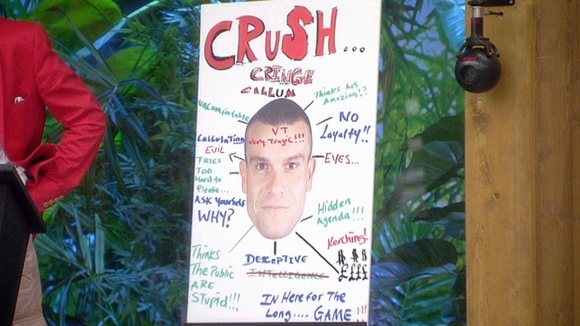 CRUSH...
CRINGE
CALLUM
UNCOMFORTABLE
Thinks he's
Amazing!?
NO
Loyalty!!
VT
Very Tragic!!!
Calculating
EVIL
EYES...
TRIES
TOO
Hard to
Please...
ASK YOURSELF
WHY?
Hidden
Agenda!!!
Kerching!
DESCEPTIVE
INTELLIGENCE
££££
Thinks
The Public
ARE
Stupid!!!
IN HERE FOR THE
LONG.... GAME!!!